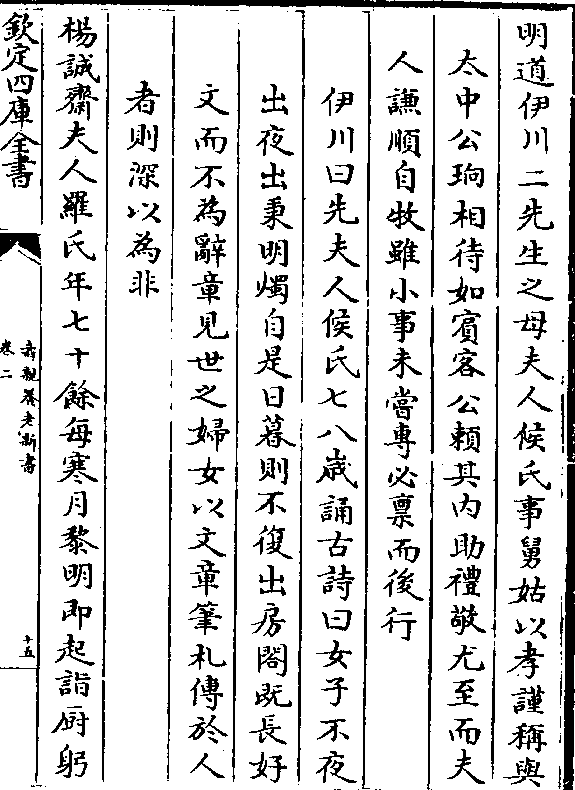 明道伊川二先生之母夫人侯氏事舅姑以孝謹稱與
太中公珦相待如賓客公賴其内助禮敬尤至而夫
人謙順自牧雖小事未嘗專必禀而後行
伊川曰先夫人侯氏七八歲誦古詩曰女子不夜
出夜出秉明燭自是日暮則不復出房閤既長好
文而不為辭章見世之婦女以文章筆札傳於人
者則深以為非
楊誠齋夫人羅氏年七十餘每寒月黎明即起詣厨躬
欽定四庫全書
壽親養老新書
卷二
十五